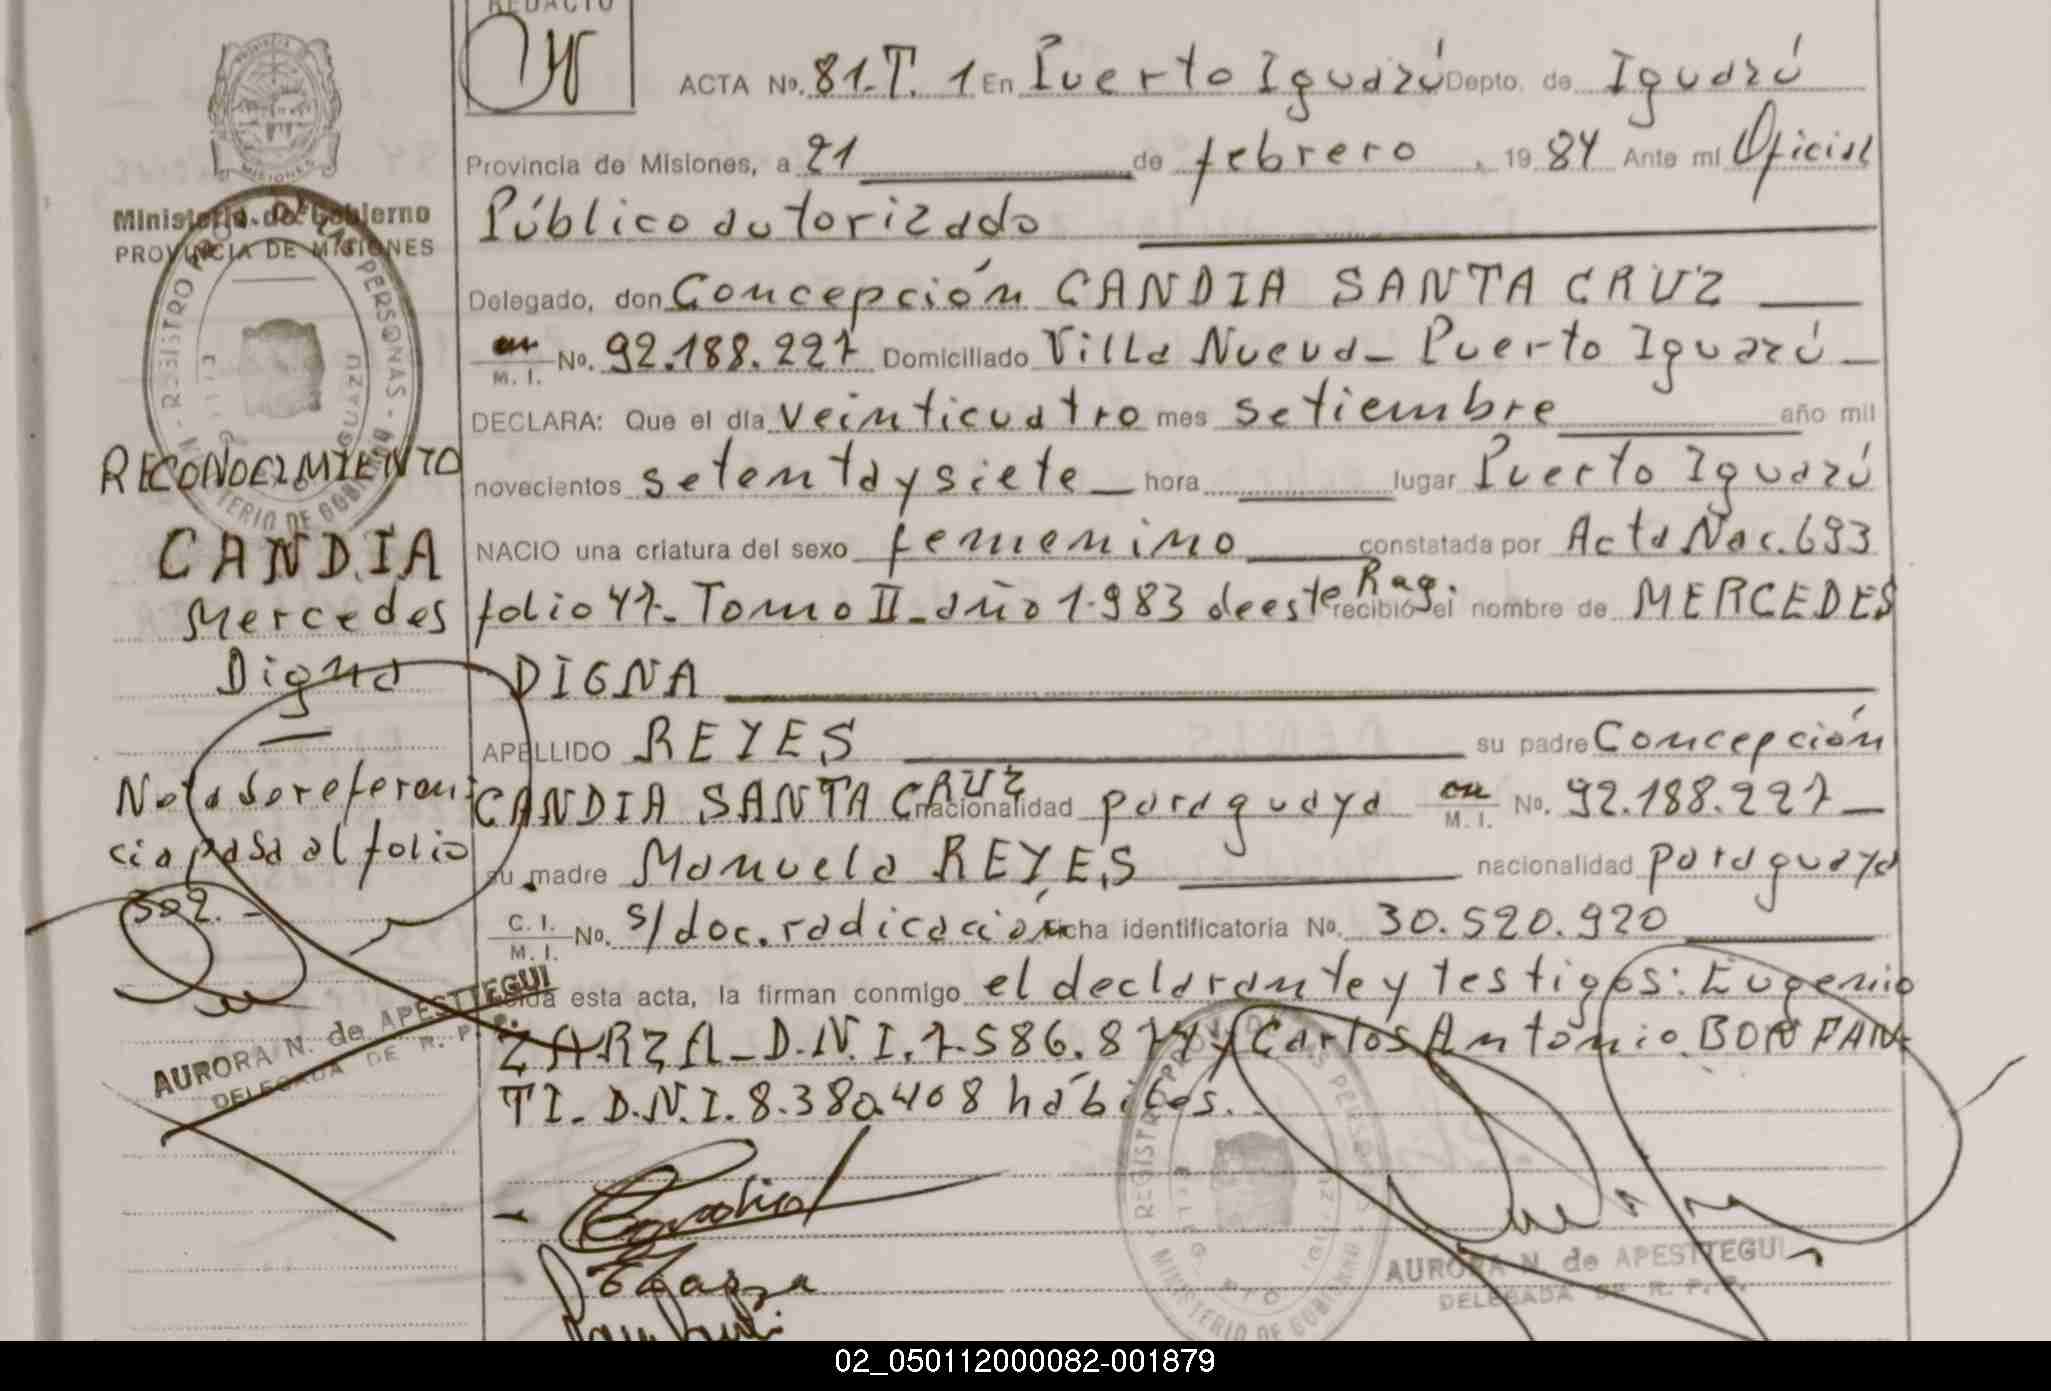 REDACTO
ACTA No. 81-T. 1 En Puerto Iguazú Depto. de Iguazú
Provincia de Misiones, a 21 de febrero , 19 84 Ante mi Oficial
Público autorizado
Delegado, don Concepción CANDIA SANTA CRUZ
M. I. No. 92.188.227 Domiciliado Villa Nueva - Puerto Iguazú -
DECLARA: Que el día veinticuatro mes setiembre año mil
novecientos setenta y siete - hora lugar Puerto Iguazú
NACIO una criatura del sexo femenino constatada por Acta Nac. 693
folio 47- Tomo II - año 1.983 de este Rag. recibió el nombre de MERCEDES
DIGNA
APELLIDO REYES su padre Concepción
CANDIA SANTA CRUZ nacionalidad paraguaya M. I. No. 92.188.227 -
su madre Manuela REYES nacionalidad paraguaya
C. I. M. I. No. s/doc. radicación ficha identificatoria No. 30.520.920
esta acta, la firman conmigo el declarante y testigos: Eugenio
ZARZA - D.N.I. 7.586.874 y Carlos Antonio BONFAN-
TI - D.N.I. 8.380.408 hábiles.
MISIONES
Ministerio de Gobierno
PROVINCIA DE MISIONES
REGISTRO DE LAS PERSONAS
MINISTERIO DE GOBIERNO
IGUAZU
RECONOCIMIENTO
CANDIA
Mercedes
Digna
Nota de referen-
cia pasa al folio
302.-
AURORA N. de APESTTEGUI
DELEGADA DE R. P. P.
REGISTRO PROV. DE LAS PERSONAS
MINISTERIO DE GOBIERNO
AURORA N. de APESTTEGUI
DELEGADA DE R. P. P.
02_050112000082-001879